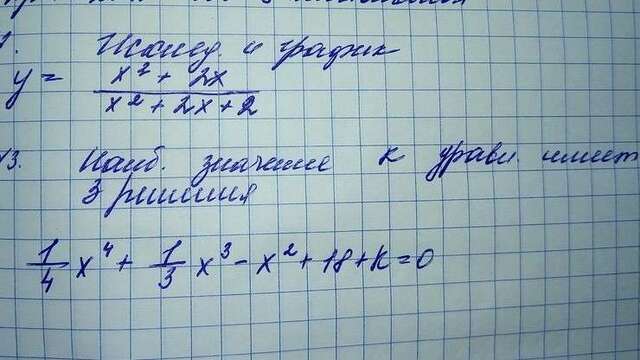 1. Исслед. и график
y = x² + 2x / x² + 2x + 2
13. Наиб. значение к уравн. имеет
3 решения
1/4 x⁴ + 1/3 x³ - x² + 18 + k = 0